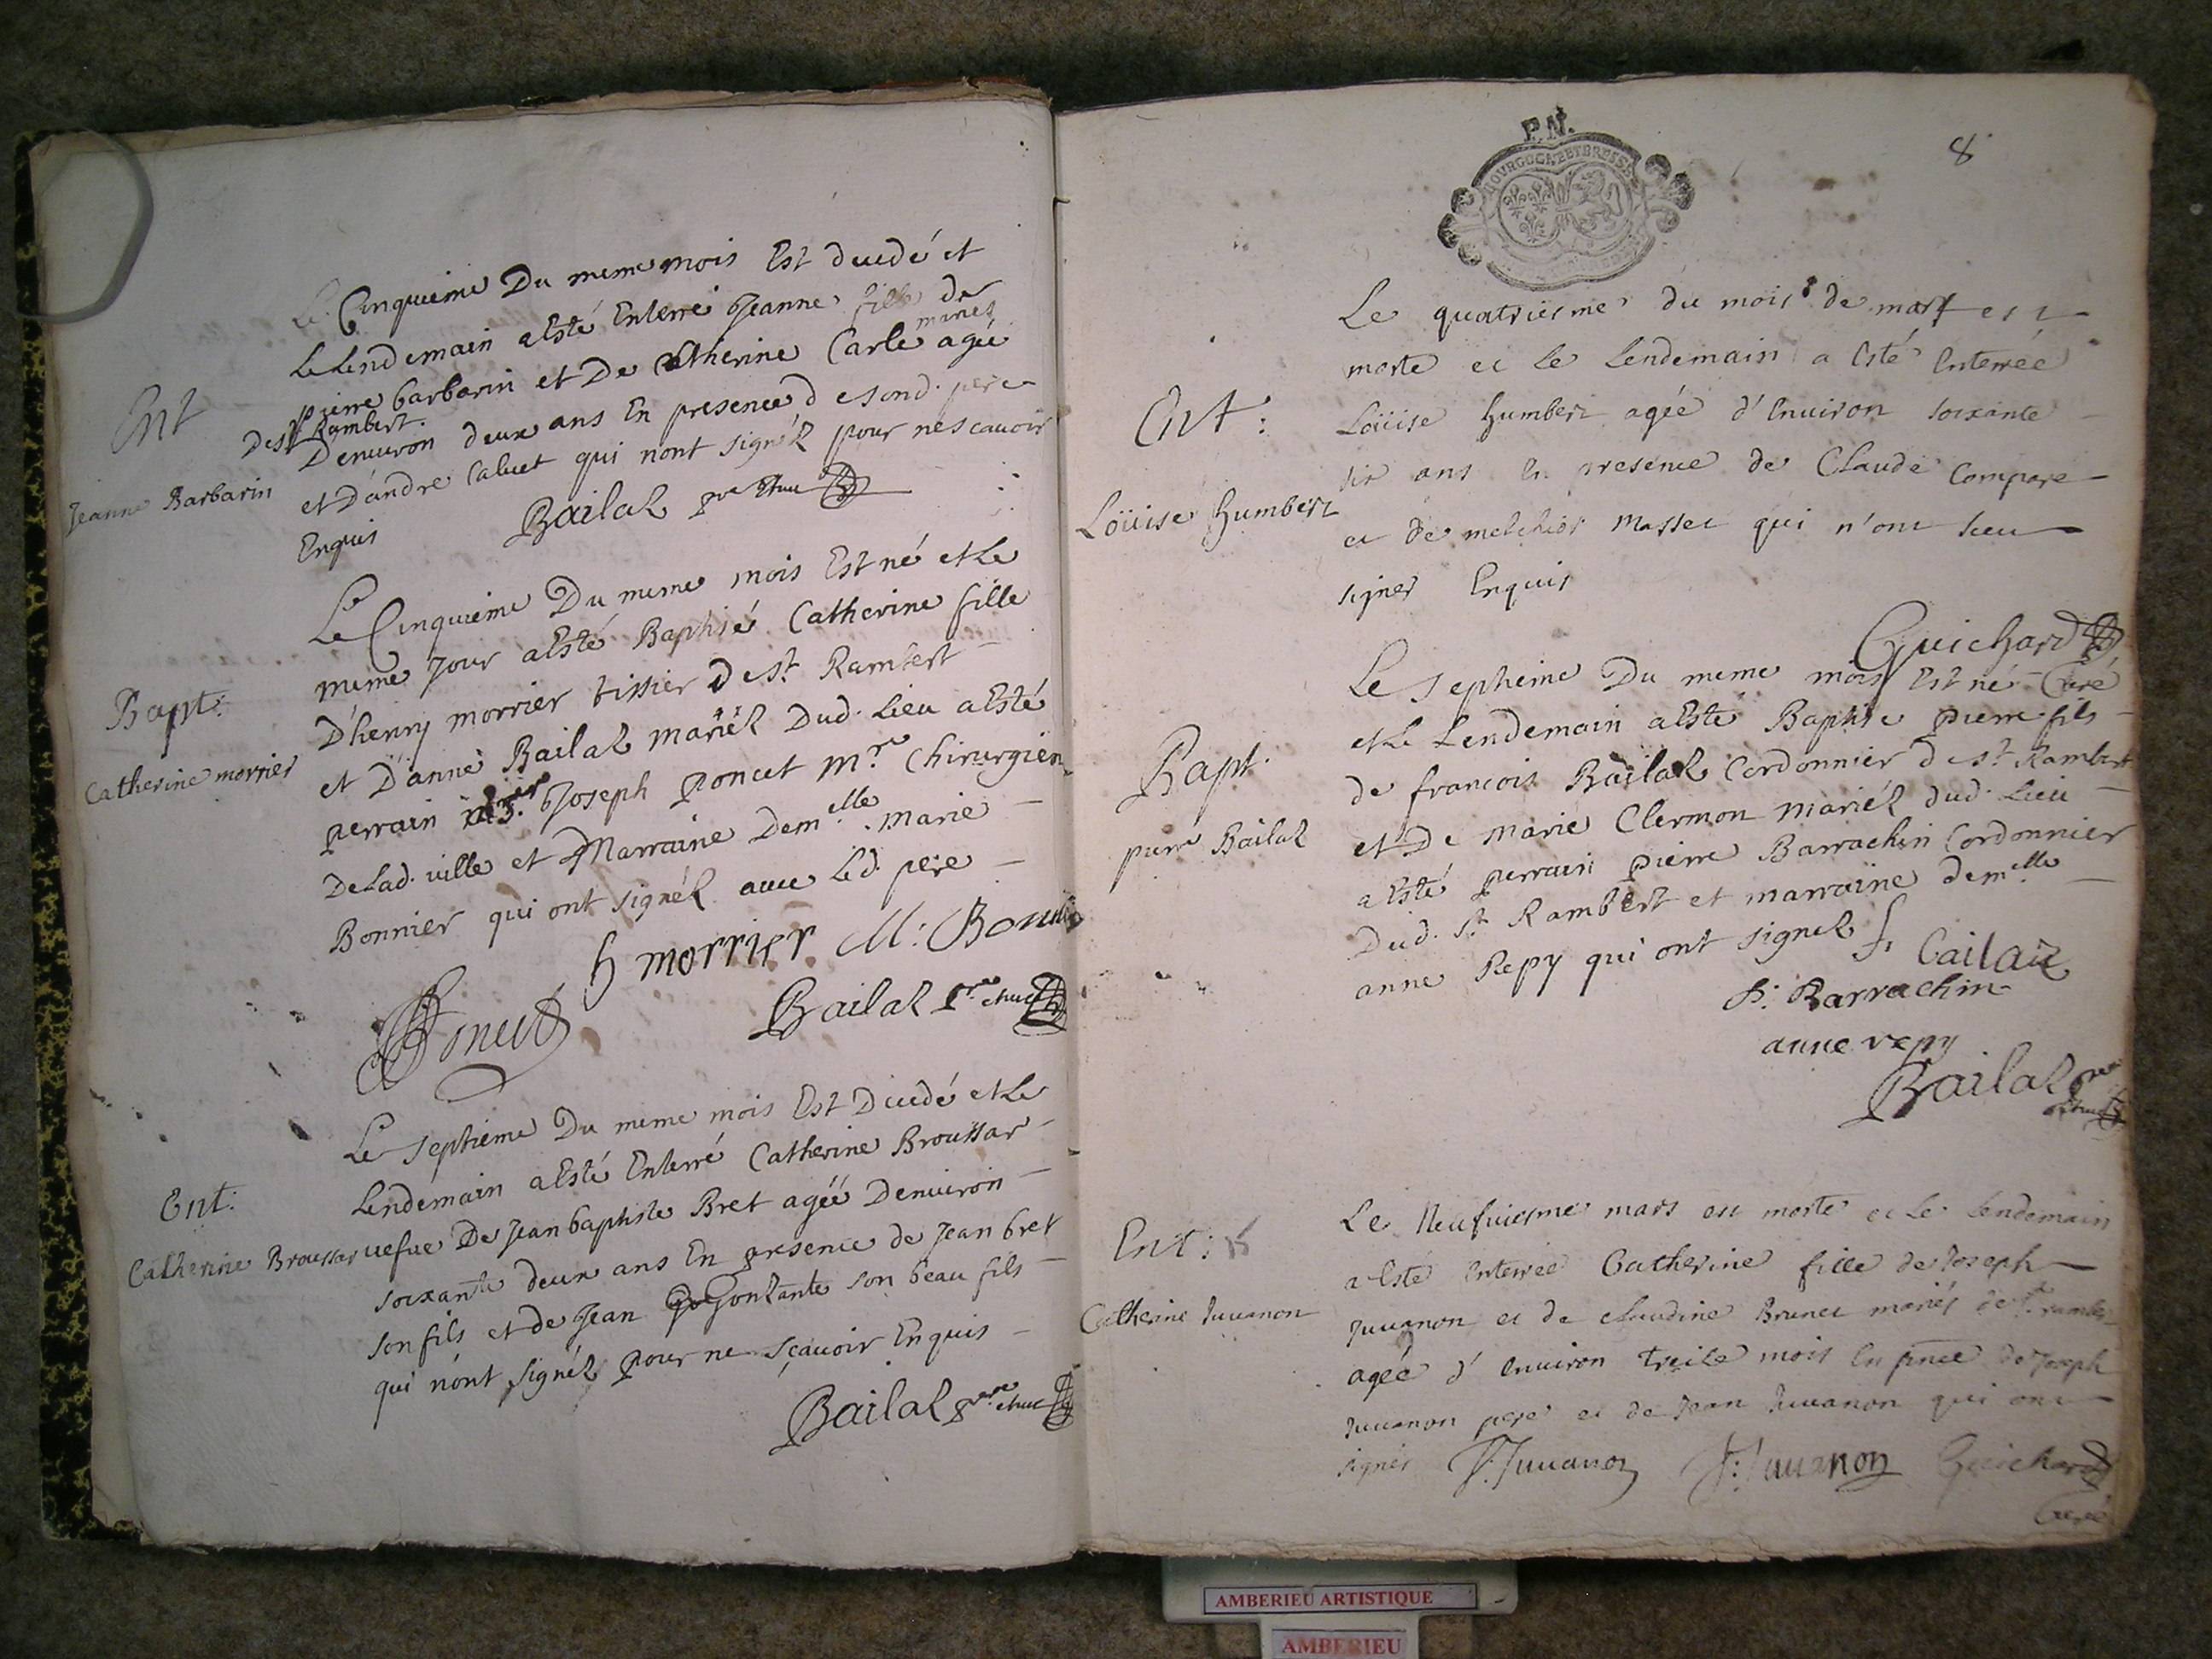 Le Cinquieme Du meme mois Est decedé et
Le Lendemain a Esté Enterré Jeanne fille de
pierre barbarin et De Catherine Carle mariés agée
Ent
de St Rambert.
Denuiron deux ans En presence de sond. pere
Jeanne Barbarin
et D'andre Caluet qui n'ont signéz pour ne scauoir
Enquis
Bailaz pre
Le Cinquieme Du meme mois Est né et Le
meme Jour a Esté Baptisé Catherine fille
Bapt:
D'henry morrier tissier de St. Rambert
Catherine morrier
et D'anne Bailaz mariéz Dud. Lieu a Esté
perrain Joseph poncet mre. Chirurgien
De Lad. ville et Marraine Demelle. Marie
Bonnier qui ont signéz auec Led. pere
h morrier M: Bonnie
Poncet
Bailaz pre
Le septieme Du meme mois Est Decedé et Le
Lendemain a Esté Enterré Catherine Broussar
Ent:
Catherine Broussar
uefue De Jean baptiste Bret agéé Denuiron
soixante deux ans En presence de Jean bret
son fils et de Jean Gontante son beau fils
qui n'ont signéz pour ne sçauoir Enquis
Bailaz pre
P.N.
BOURGOGNE ET BRESSE
8
Le quatriesme du mois de mars est
morte et Le Lendemain a Esté Enterrée
Ent:
Loüise humbert agée d'Enuiron soixante
six ans En presence de Claude Compare
Loüise humbert
et de melchior Masset qui n'ont sceu
signer Enquis
Guichard
Curé
Le septieme Du meme mois Est né
et Le Lendemain a Esté Baptise pierre fils
Bapt.
de francois Bailaz Cordonnier de St. Rambert
pierre Bailaz
et De Marie Clermon Mariéz dud. Lieu
a Esté perrain pierre Barrachin Cordonnier
Dud. St. Rambert et marraine demelle
anne Repy qui ont signez
f. Bailaz
P: Barrachin
anne repy
Bailaz pre
Le Neufuiesme mars est morte et Le Lendemain
Ent:
a Esté Enterrée Catherine fille de Joseph
Catherine Juuanon
Juuanon et de claudine Brunet mariés de St. rambert
agée d'Enuiron treize mois En pnce de Joseph
Juuanon pere et de Jean Juuanon qui ont
signés J: Juuanon J: Juuanon Guichard
Curé
AMBERIEU ARTISTIQUE
AMBERIEU